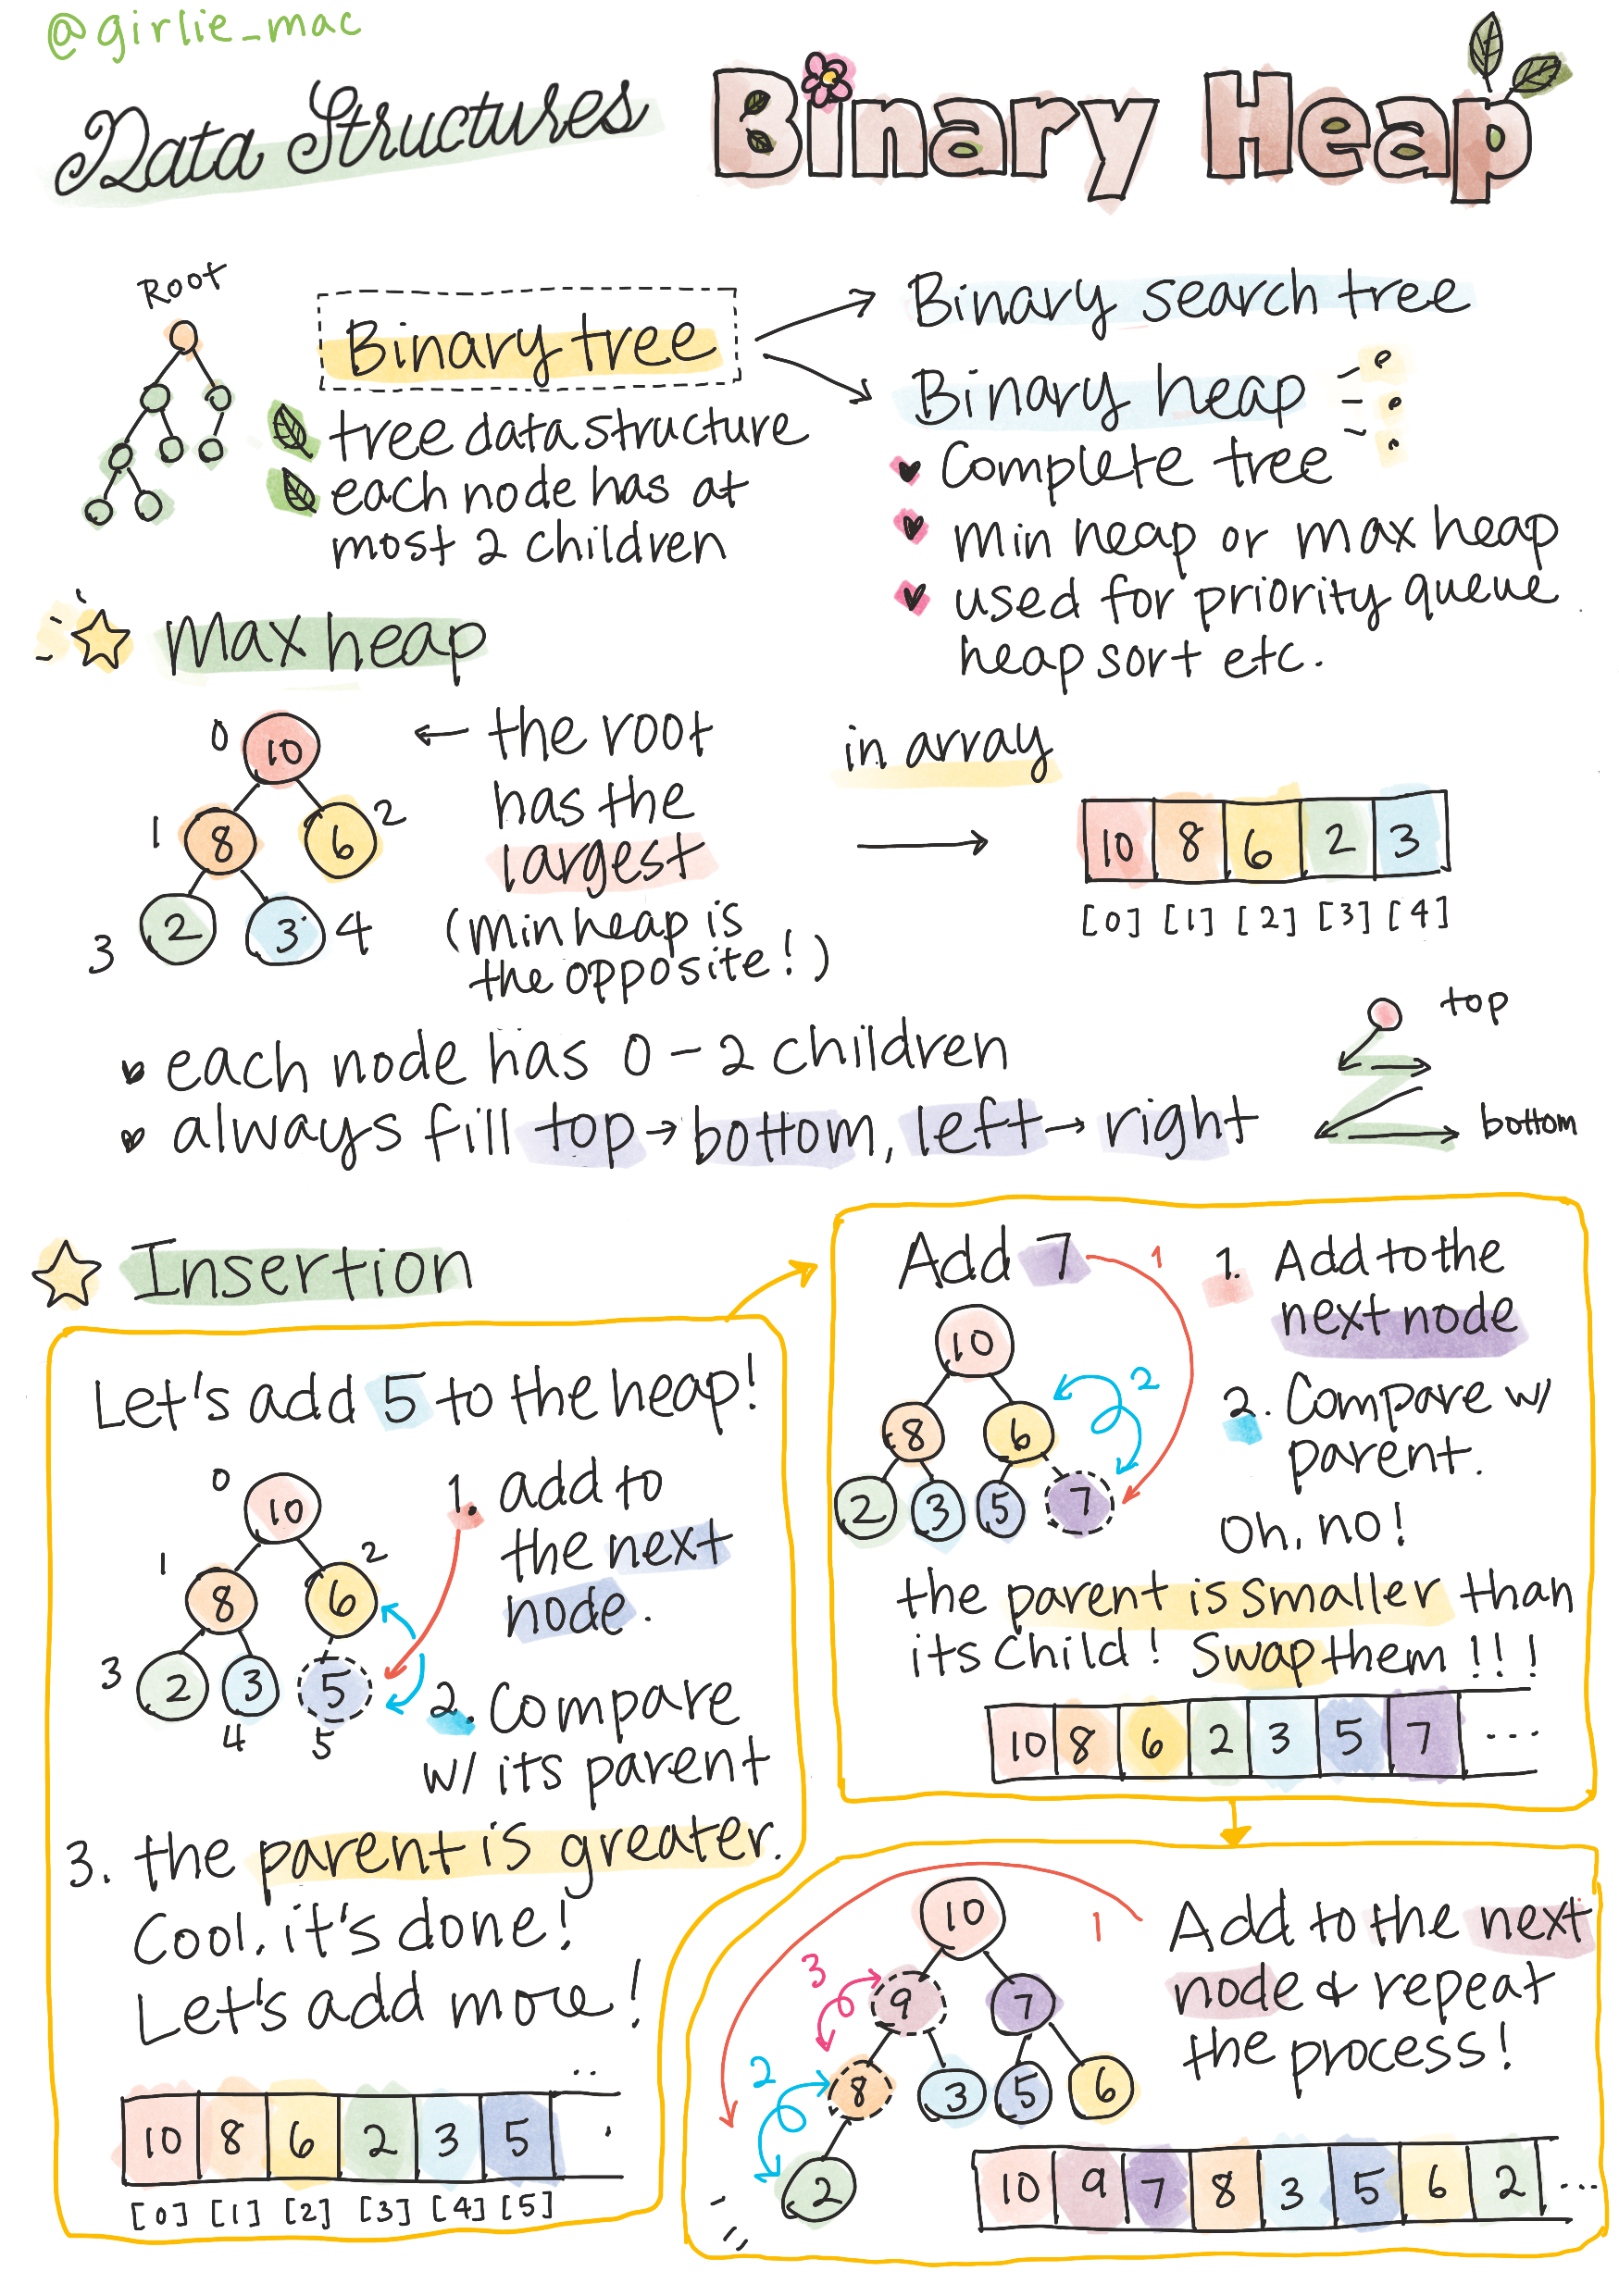 @girlie_mac
Data Structures
Binary Heap
Root
Binary tree
tree data structure
each node has at
most 2 children
Binary search tree
Binary heap
Complete tree
min heap or max heap
used for priority queue
heap sort etc.
Max heap
0 10
1 8 6 2
3 2 3 4
← the root
has the
largest
(Min heap is
the opposite!)
in array
10 8 6 2 3
[0] [1] [2] [3] [4]
each node has 0 - 2 children
always fill top → bottom, left → right
top
bottom
Insertion
Let's add 5 to the heap!
0 10
1 8 6 2
3 2 3 5
4 5
1. add to
the next
node.
2. Compare
w/ its parent
3. the parent is greater.
Cool, it's done!
Let's add more!
10 8 6 2 3 5
[0] [1] [2] [3] [4] [5]
Add 7 1
10
8 6 2
2 3 5 7
1. Add to the
next node
2. Compare w/
parent.
Oh, no!
the parent is smaller than
its child! Swap them!!!
10 8 6 2 3 5 7 ...
10 1
3 9 7
2 8 3 5 6
2
Add to the next
node & repeat
the process!
10 9 7 8 3 5 6 2 ...